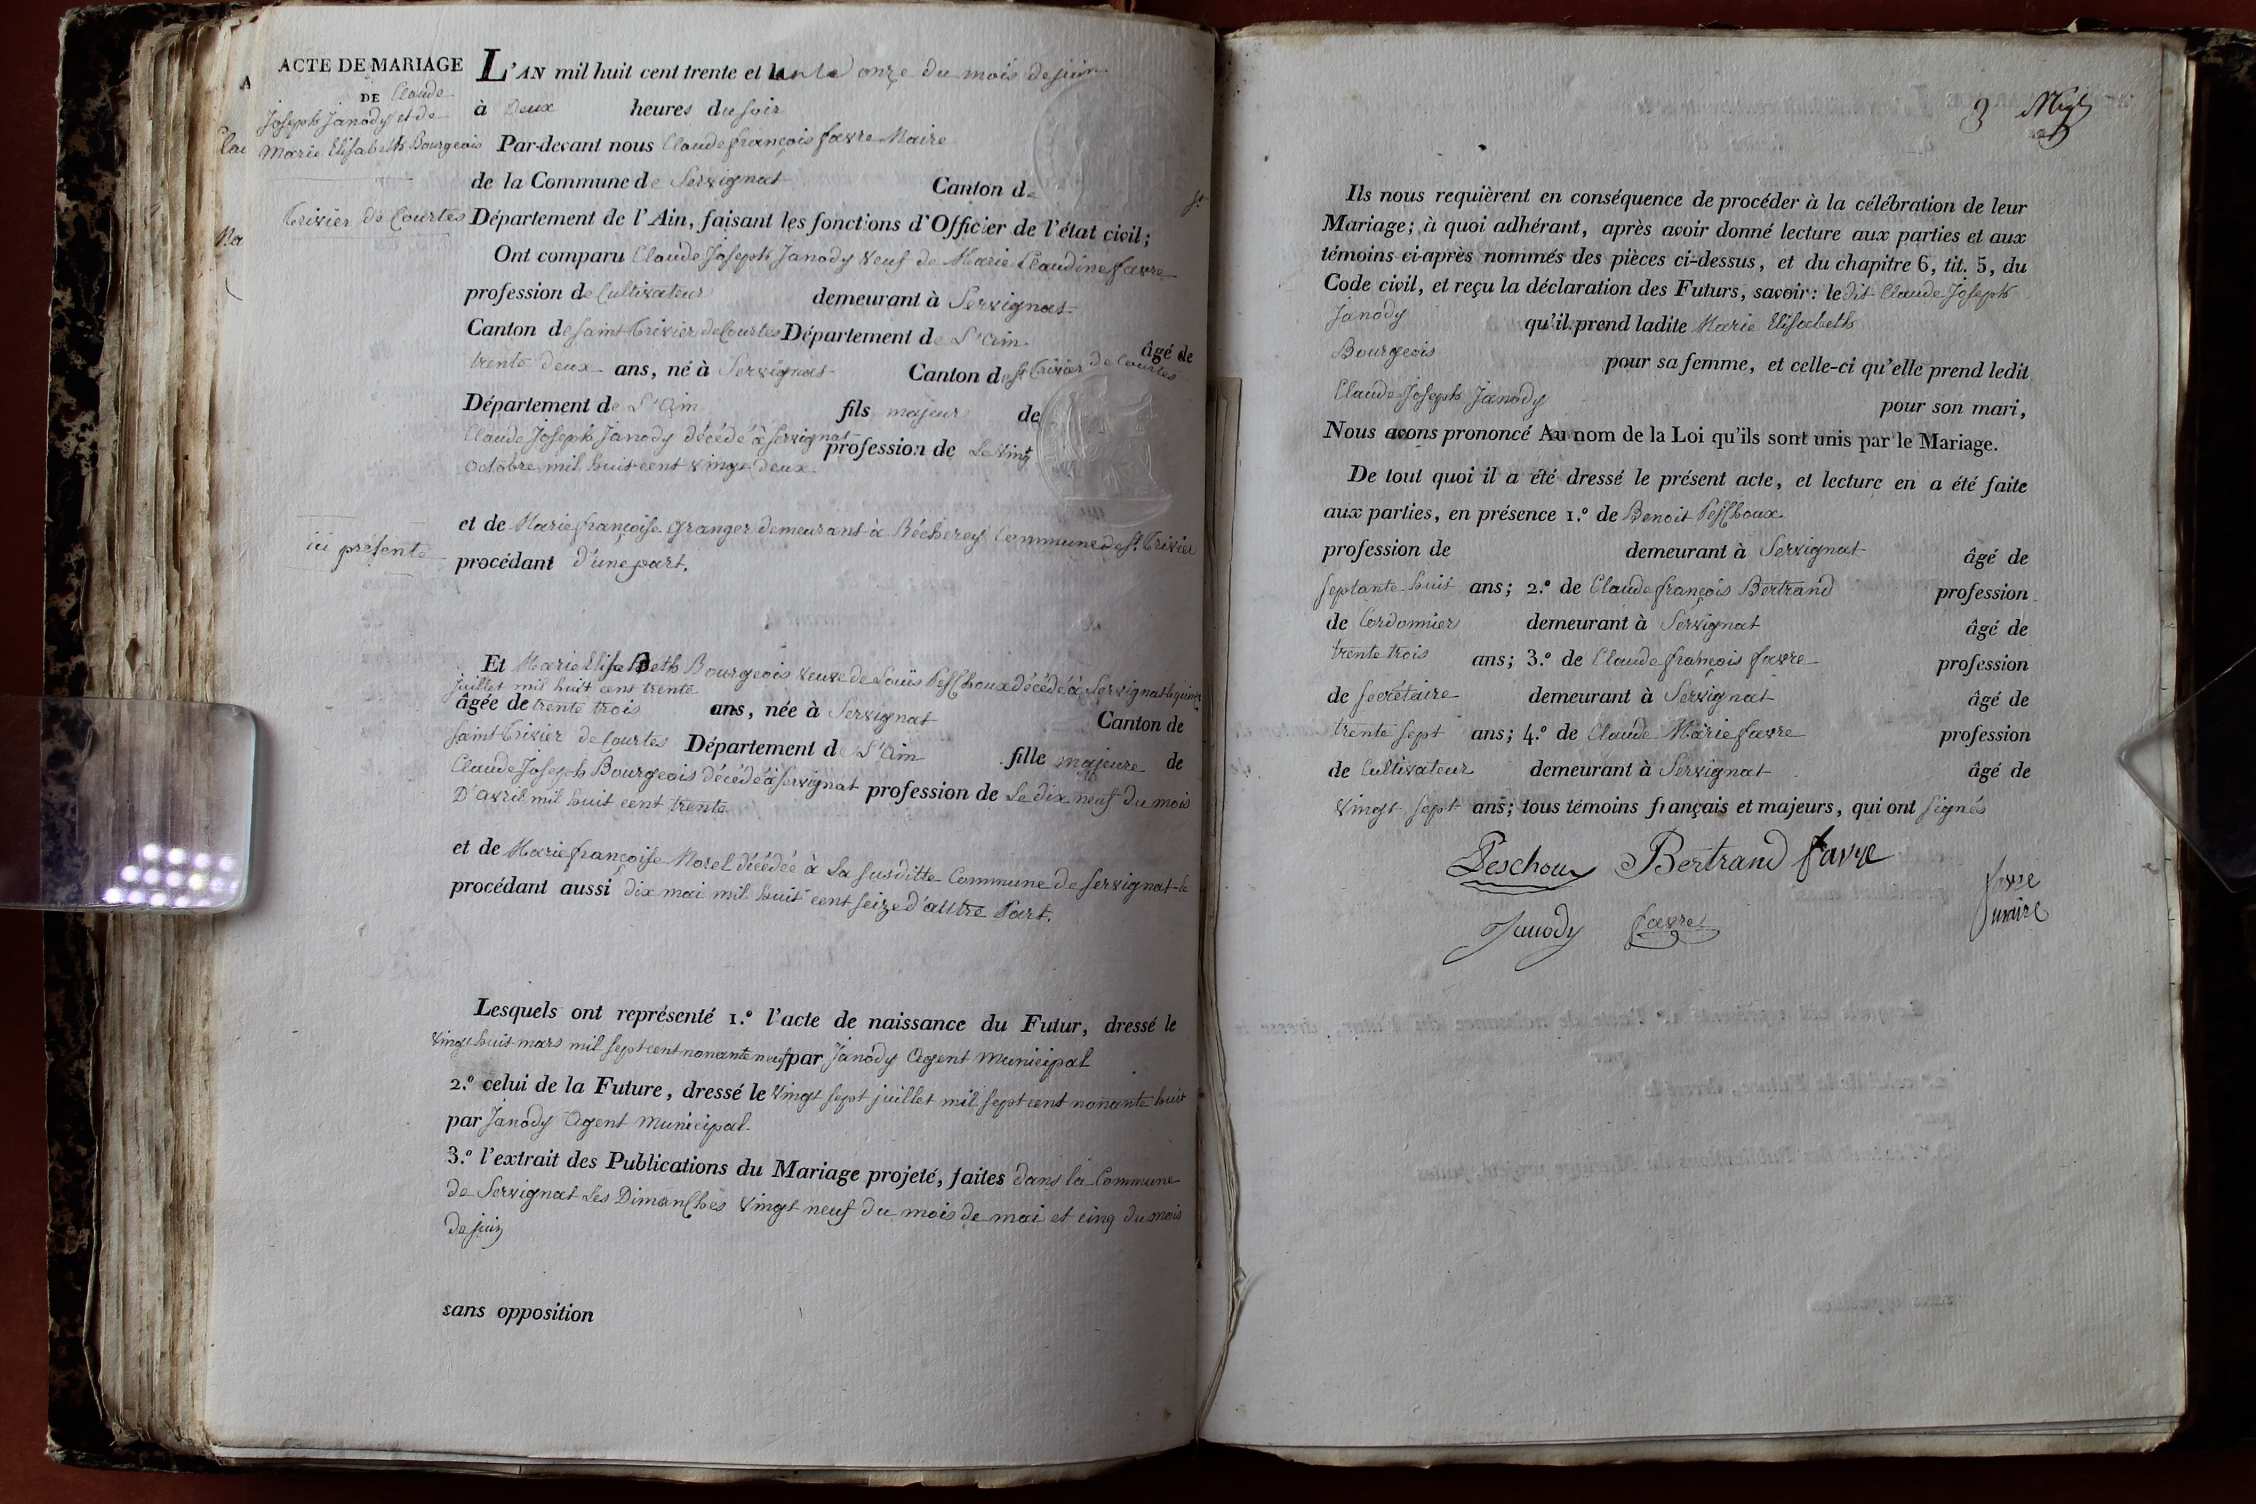 ACTE DE MARIAGE
DE Claude
Joseph Janody et de
Marie Elisabeth Bourgeois
L'AN mil huit cent trente et un le onze du mois de juin
à Deux heures du soir
Par-devant nous Claude françois favre Maire
de la Commune de Servignat Canton de St
trivier de Courtes Département de l'Ain, faisant les fonctions d'Officier de l'état civil;
Ont comparu Claude Joseph Janody veuf de Marie Claudine favre
profession de Cultivateur demeurant à Servignat
Canton de Saint trivier de Courtes Département de L'ain âgé de
trente deux ans, né à Servignat Canton de St trivier de Courtes
Département de L'ain fils majeur de
Claude Joseph Janody décédé à Servignat profession de Le vingt
octobre mil huit cent vingt deux
et de Marie françoise granger demeurant à Bécherey Commune de St. trivier
ici présente
procédant d'une part.
Et Marie Elisabeth Bourgeois veuve de Louis Peschoux décédé à Servignat le quinze
juillet mil huit cent trente
âgée de trente trois ans, née à Servignat Canton de
saint trivier de Courtes Département de L'ain fille majeure de
Claude Joseph Bourgeois décédé à Servignat profession de Le dix neuf du mois
D'avril mil huit cent trente
et de Marie françoise Morel décédée à La susditte Commune de Servignat le
procédant aussi dix mai mil huit cent seize d'autre Part.
Lesquels ont représenté 1.º l'acte de naissance du Futur, dressé le
vingt huit mars mil sept cent nonante neuf par Janody Agent Municipal
2.º celui de la Future, dressé le vingt sept juillet mil sept cent nonante huit
par Janody Agent Municipal.
3.º l'extrait des Publications du Mariage projeté, faites dans la Commune
de Servignat Les Dimanches vingt neuf du mois de mai et cinq du mois
de juin
sans opposition
3
Ils nous requièrent en conséquence de procéder à la célébration de leur
Mariage; à quoi adhérant, après avoir donné lecture aux parties et aux
témoins ci-après nommés des pièces ci-dessus, et du chapitre 6, tit. 5, du
Code civil, et reçu la déclaration des Futurs, savoir: le dit Claude Joseph
Janody qu'il prend ladite Marie Elisabeth
Bourgeois pour sa femme, et celle-ci qu'elle prend ledit
Claude Joseph Janody pour son mari,
Nous avons prononcé Au nom de la Loi qu'ils sont unis par le Mariage.
De tout quoi il a été dressé le présent acte, et lecture en a été faite
aux parties, en présence 1.º de Benoit Peschoux
profession de demeurant à Servignat âgé de
septante huit ans; 2.º de Claude françois Bertrand profession
de Cordonnier demeurant à Servignat âgé de
trente trois ans; 3.º de Claude françois favre profession
de secrétaire demeurant à Servignat âgé de
trente sept ans; 4.º de Claude Marie favre profession
de Cultivateur demeurant à Servignat âgé de
vingt sept ans; tous témoins français et majeurs, qui ont signés
Peschoux Bertrand favre
Janody favre favre
maire